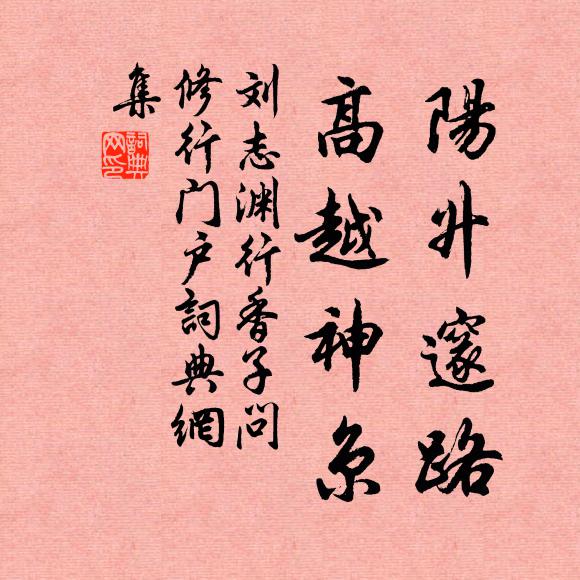 陽升邃路
高越神京
刘志渊行香子问
修行门户詞典網
集
詞典網印